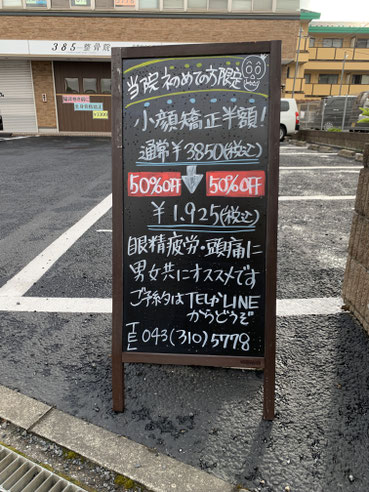 385 整骨院
当院初めての方限定
小顔矯正半額!
通常¥3850(税込)
50%OFF 50%OFF
¥1.925(税込)
眼精疲労・頭痛に
男女共にオススメです
ご予約はTELかLINE
からどうぞ
TEL 043(310)5778